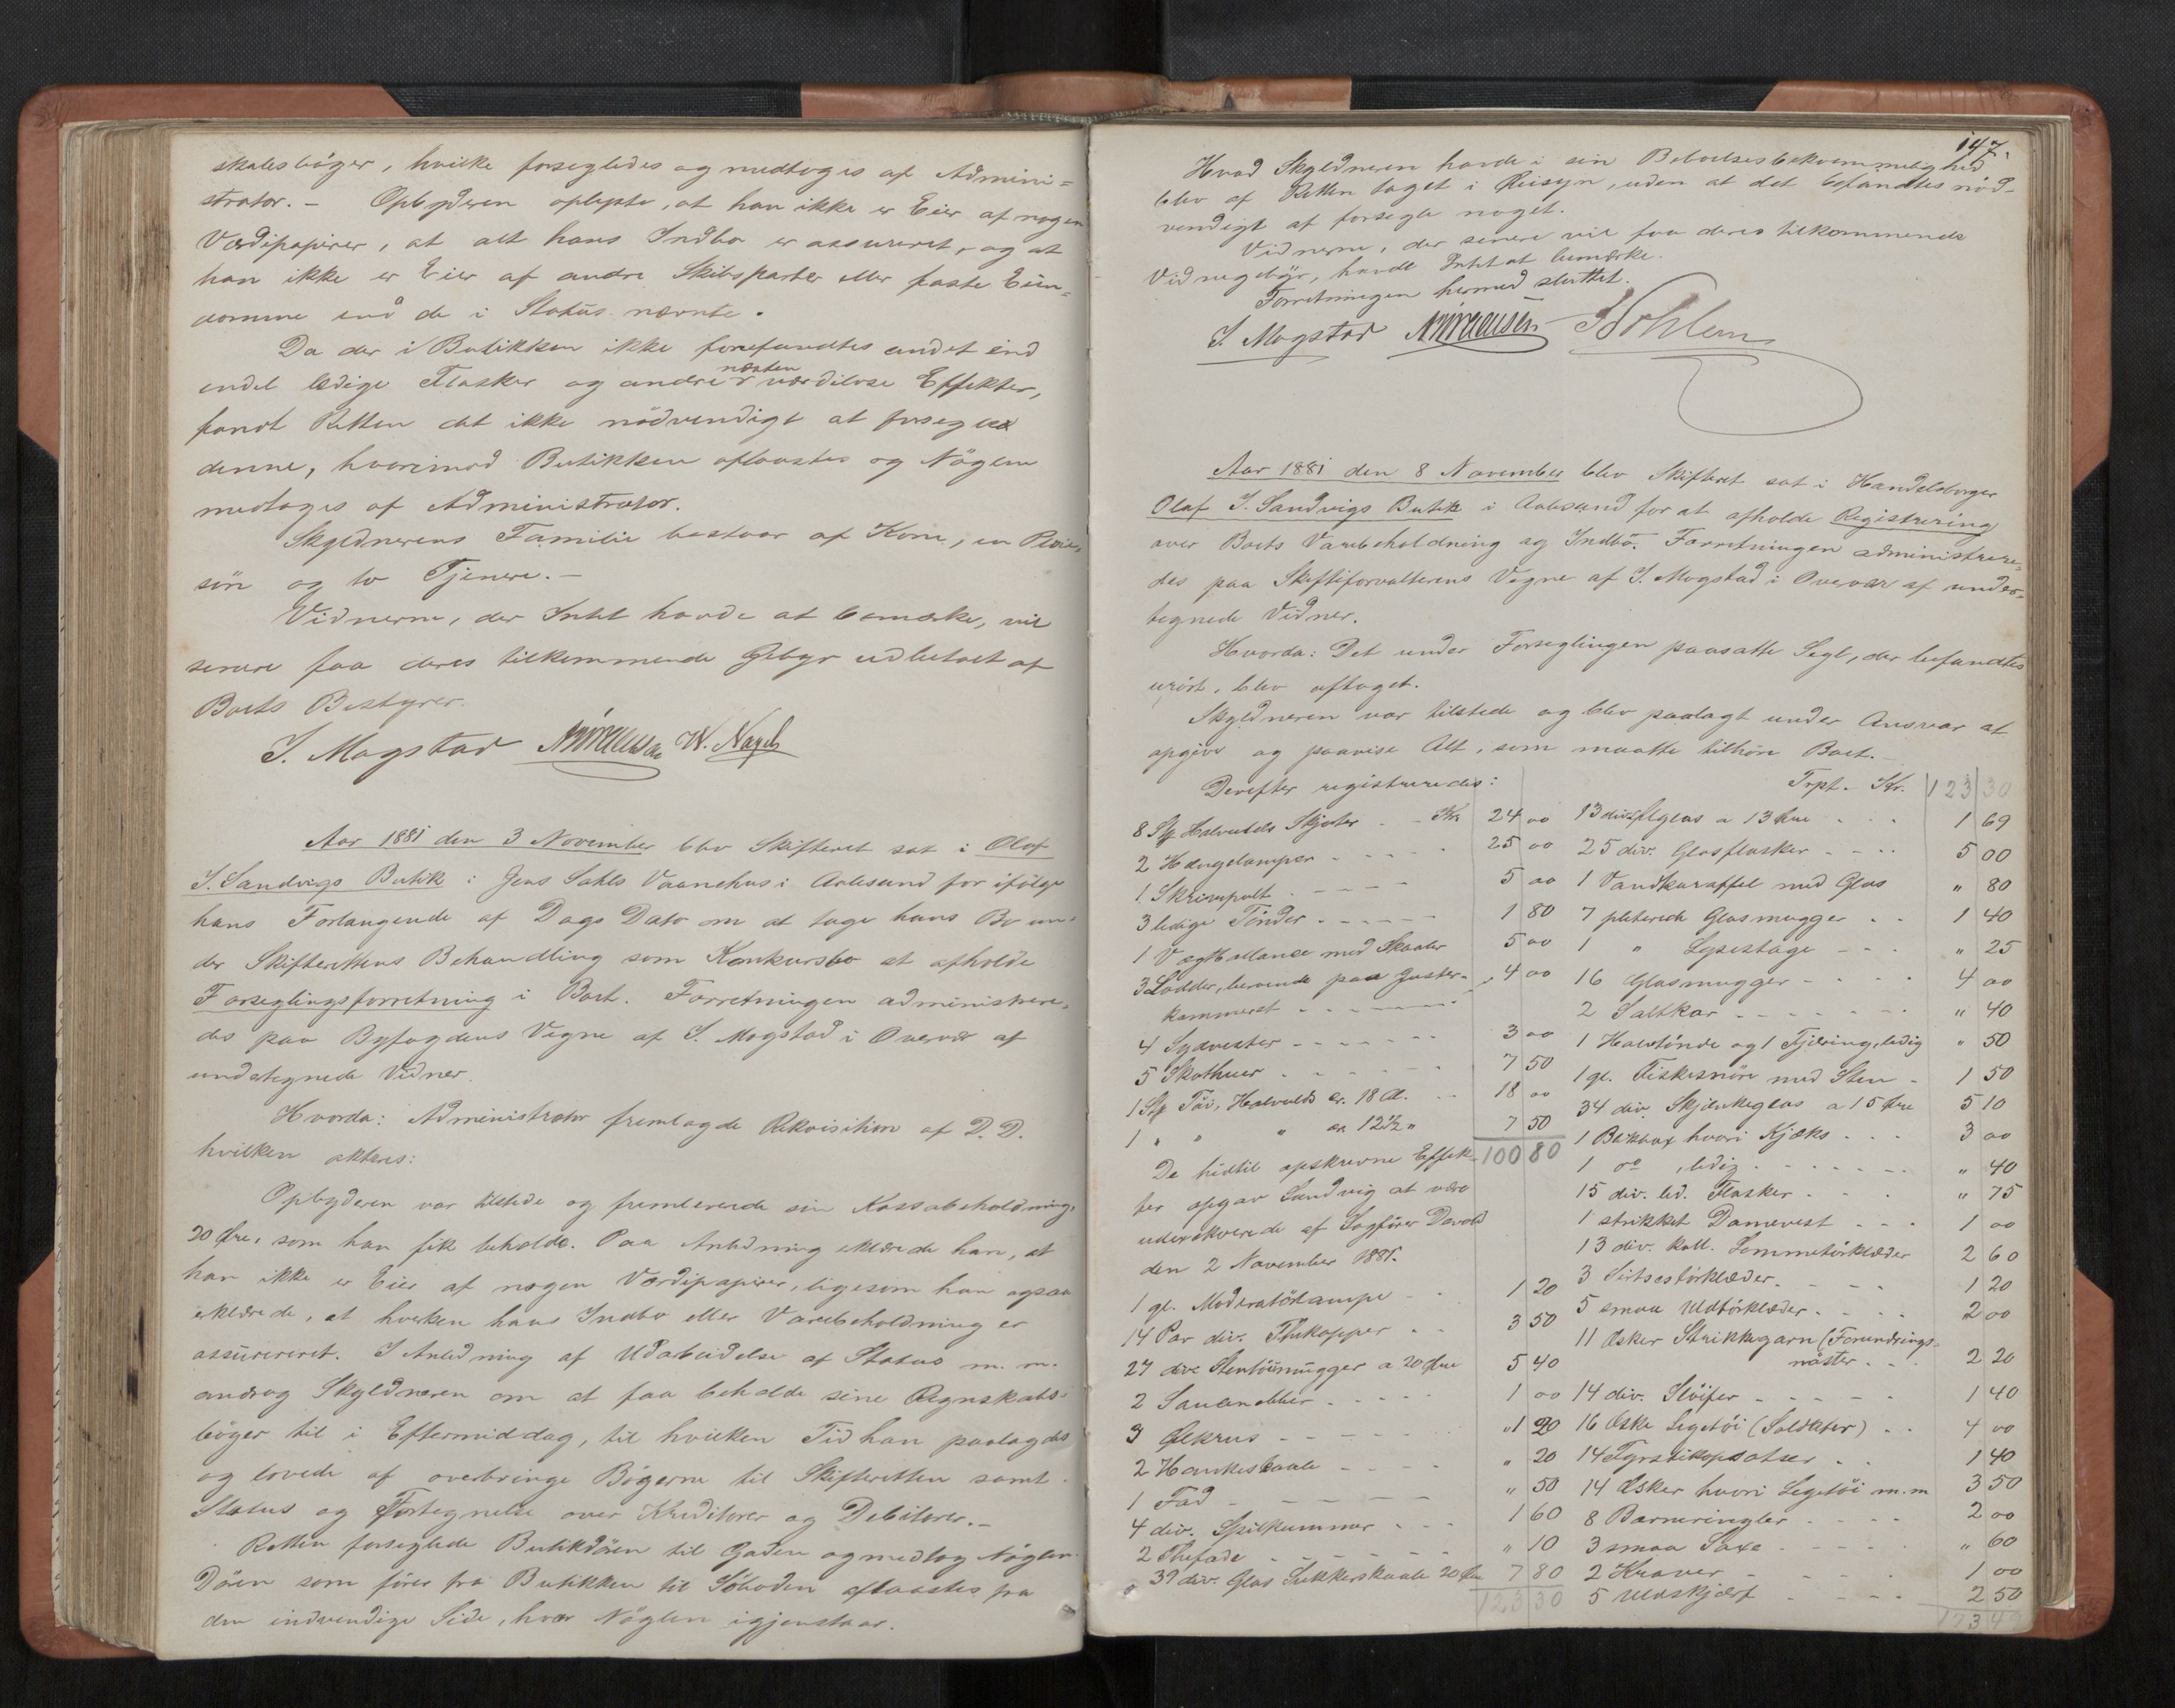 skabsbøger, hvilke forsegledes og medtoges af Admini=
strator. – Opbyderen oplyste, at han ikke er Eier af nogen
Værdipapirer, at alt hans Indbo er assureret, og at
han ikke er Eier af andre Skibsparter eller faste Eien=
domme end de i Status nævnte.
Da der i Butikken ikke forefandtes andet end
endel ledige Flasker og andre næsten værdiløse Effekter,
fandt Retten det ikke nödvendigt at forsegle
denne, hvorimod Butikken aflaastes og Nöglen
medtoges af Administrator.
Skyldnerens Familie bestaar af Kone, en Pleie=
sön og to Tjenere. –
Vidnerne, der Intet havde at bemærke, vil
senere faa deres tilkommende Gebyr udbetalt af
Boets Bestyrer.
S. Mogstad W. Nagel
Aar 1881 den 3 November blev Skifteret sat i Olaf
J. Sandvigs Butik i Jens Sahls Vaanehus i Aalesund for ifölge
hans Forlangende af Dags Dato om at tage hans Bo un=
der Skifterettens Behandling som Konkursbo at afholde
Forseglingsforretning i Boet. Forretningen administrere=
des paa Byfogdens Vegne af S. Mogstad i Overvær af
undertegnede Vidner.
Hvorda: Administrator fremlagde Rekvisition af D.D.
hvilken akteres:
Opbyderen var tilstede og fremleverede sin Kassabeholdning,
20 Øre, som han fik beholde. Paa Anledning erklærede han, at
han ikke er Eier af nogen Værdipapirer, ligesom han ogsaa
erklærede, at hverken hans Indbo eller Varebeholdning er
assureret. I Anledning af Udarbeidelse af Status m. m.
androg Skyldneren om at faa beholde sine Regnskabs=
böger til i Eftermiddag, til hvilken Tid han paalagdes
og lovede at overbringe Bögerne til Skifteretten samt
Status og Fortegnelse over Kreditorer og Debitorer. –
Retten forseglede Butikdören til Gaden og medtog Nöglen.
Dören som förer fra Butikken til Söboden aflaastes fra
den indvendige Side, hvor Nöglen igjenstaar.
147.
Hvad Skyldneren havde i sin Beboelsesbekvemmelighed
blev af Retten taget i Øiesyn, uden at det befandtes nöd-
vendigt at forsegle noget.
Vidnerne, der senere vil faa deres tilkommende
Vidnegebyr, havde Intet at bemærke.
Forretningen hermed sluttet.
S. Mogstad
Aar 1881 den 8 November blev Skifteret sat i Handelsborger
Olaf J. Sandvigs Butik i Aalesund for at afholde Registrering
over Boets Varebeholdning og Indbo. Forretningen administrere=
des paa Skifteforvalterens Vegne af S. Mogstad i Overvær af under=
tegnede Vidner.
Hvorda: Det under Forseglingen paasatte Segl, der befandtes
urört, blev aftaget.
Skyldneren var tilstede og blev paalagt under Ansvar at
opgive og paavise Alt, som maatte tilhöre Boet. –
Derefter registreredes:
8 Stk Halvulds Skjorter - - Kr. 24 00
2 Hængelamper - - - - 25 00
1 Skrivepult - - - - 5 00
3 ledige Tönder - - - - 1 80
1 Vægtballance med Skaaler 5 00
3 Lodder, beroende paa Juster- " 4 00
kammeret - - - -
4 Sydvester - - - - 3 00
5 Skothuer - - - - 7 50
1 Stk Töi, Halvulds ca. 18 Al. - - 18 00
1 " " " ca 12½ " 7 50
100 80
De hidtil opskrevne Effek-
ter opgav Sandvig at være
udexekverede af Sagförer Devold
den 2 November 1881.
1 gl. Moderatörlampe - - 1 20
14 Par div. Thekopper - - 3 50
27 div. Stentöimugger a 20 Øre 5 40
2 Sauenebber - - - - 1 00
3 Ølkrus - - - - 1 20
2 Hankeskaale - - - - " 20
1 Fad - - - - " 50
4 div. Spilkummer - - - 1 60
2 Thefade - - - - " 10
39 div. Glas Sukkerskaale 20 Øre 7 80
123 30
Trpt. Kr. 123 30
13 div. Ølglas a 13 Øre - - - 1 69
25 div. Glasflasker - - - - 5 00
1 Vandkaraffel med Glas " 80
7 pleterede Glasmugger - - 1 40
1 " Lysestage - - - " 25
16 Glasmugger - - - - 4 00
2 Saltkar - - - - " 40
1 Halvtönde og 1 Fjæring, ledig " 50
1 gl. Fiskesnöre med Sten - 1 50
34 div. Skjænkeglas a 15 Øre 5 10
1 Blikbox hvori Kjæks - - - 3 00
1 do , ledig - - - - " 40
15 div. led. Flasker - - - " 75
1 strikket Damevest - - - 1 00
13 div. kull. Lommetörklæder 2 60
3 Sirtsestörklæder - - - - 1 20
5 smaa Uldtörklæder - - - - 2 00
11 Æsker Strikkegarn (Forundrings-
nöster - - - 2 20
14 div. Slöifer - - - - 1 40
16 Æske Legetöi (Soldater) - - 4 00
14 Fyrstikopsatser - - 1 40
14 Æsker hvori Legetöi m.m 3 50
8 Barneringler - - - - 2 00
3 smaa Saxe - - - - " 60
2 Kraver - - - - 1 00
5 Uldskjærf - - - - 2 50
173 49